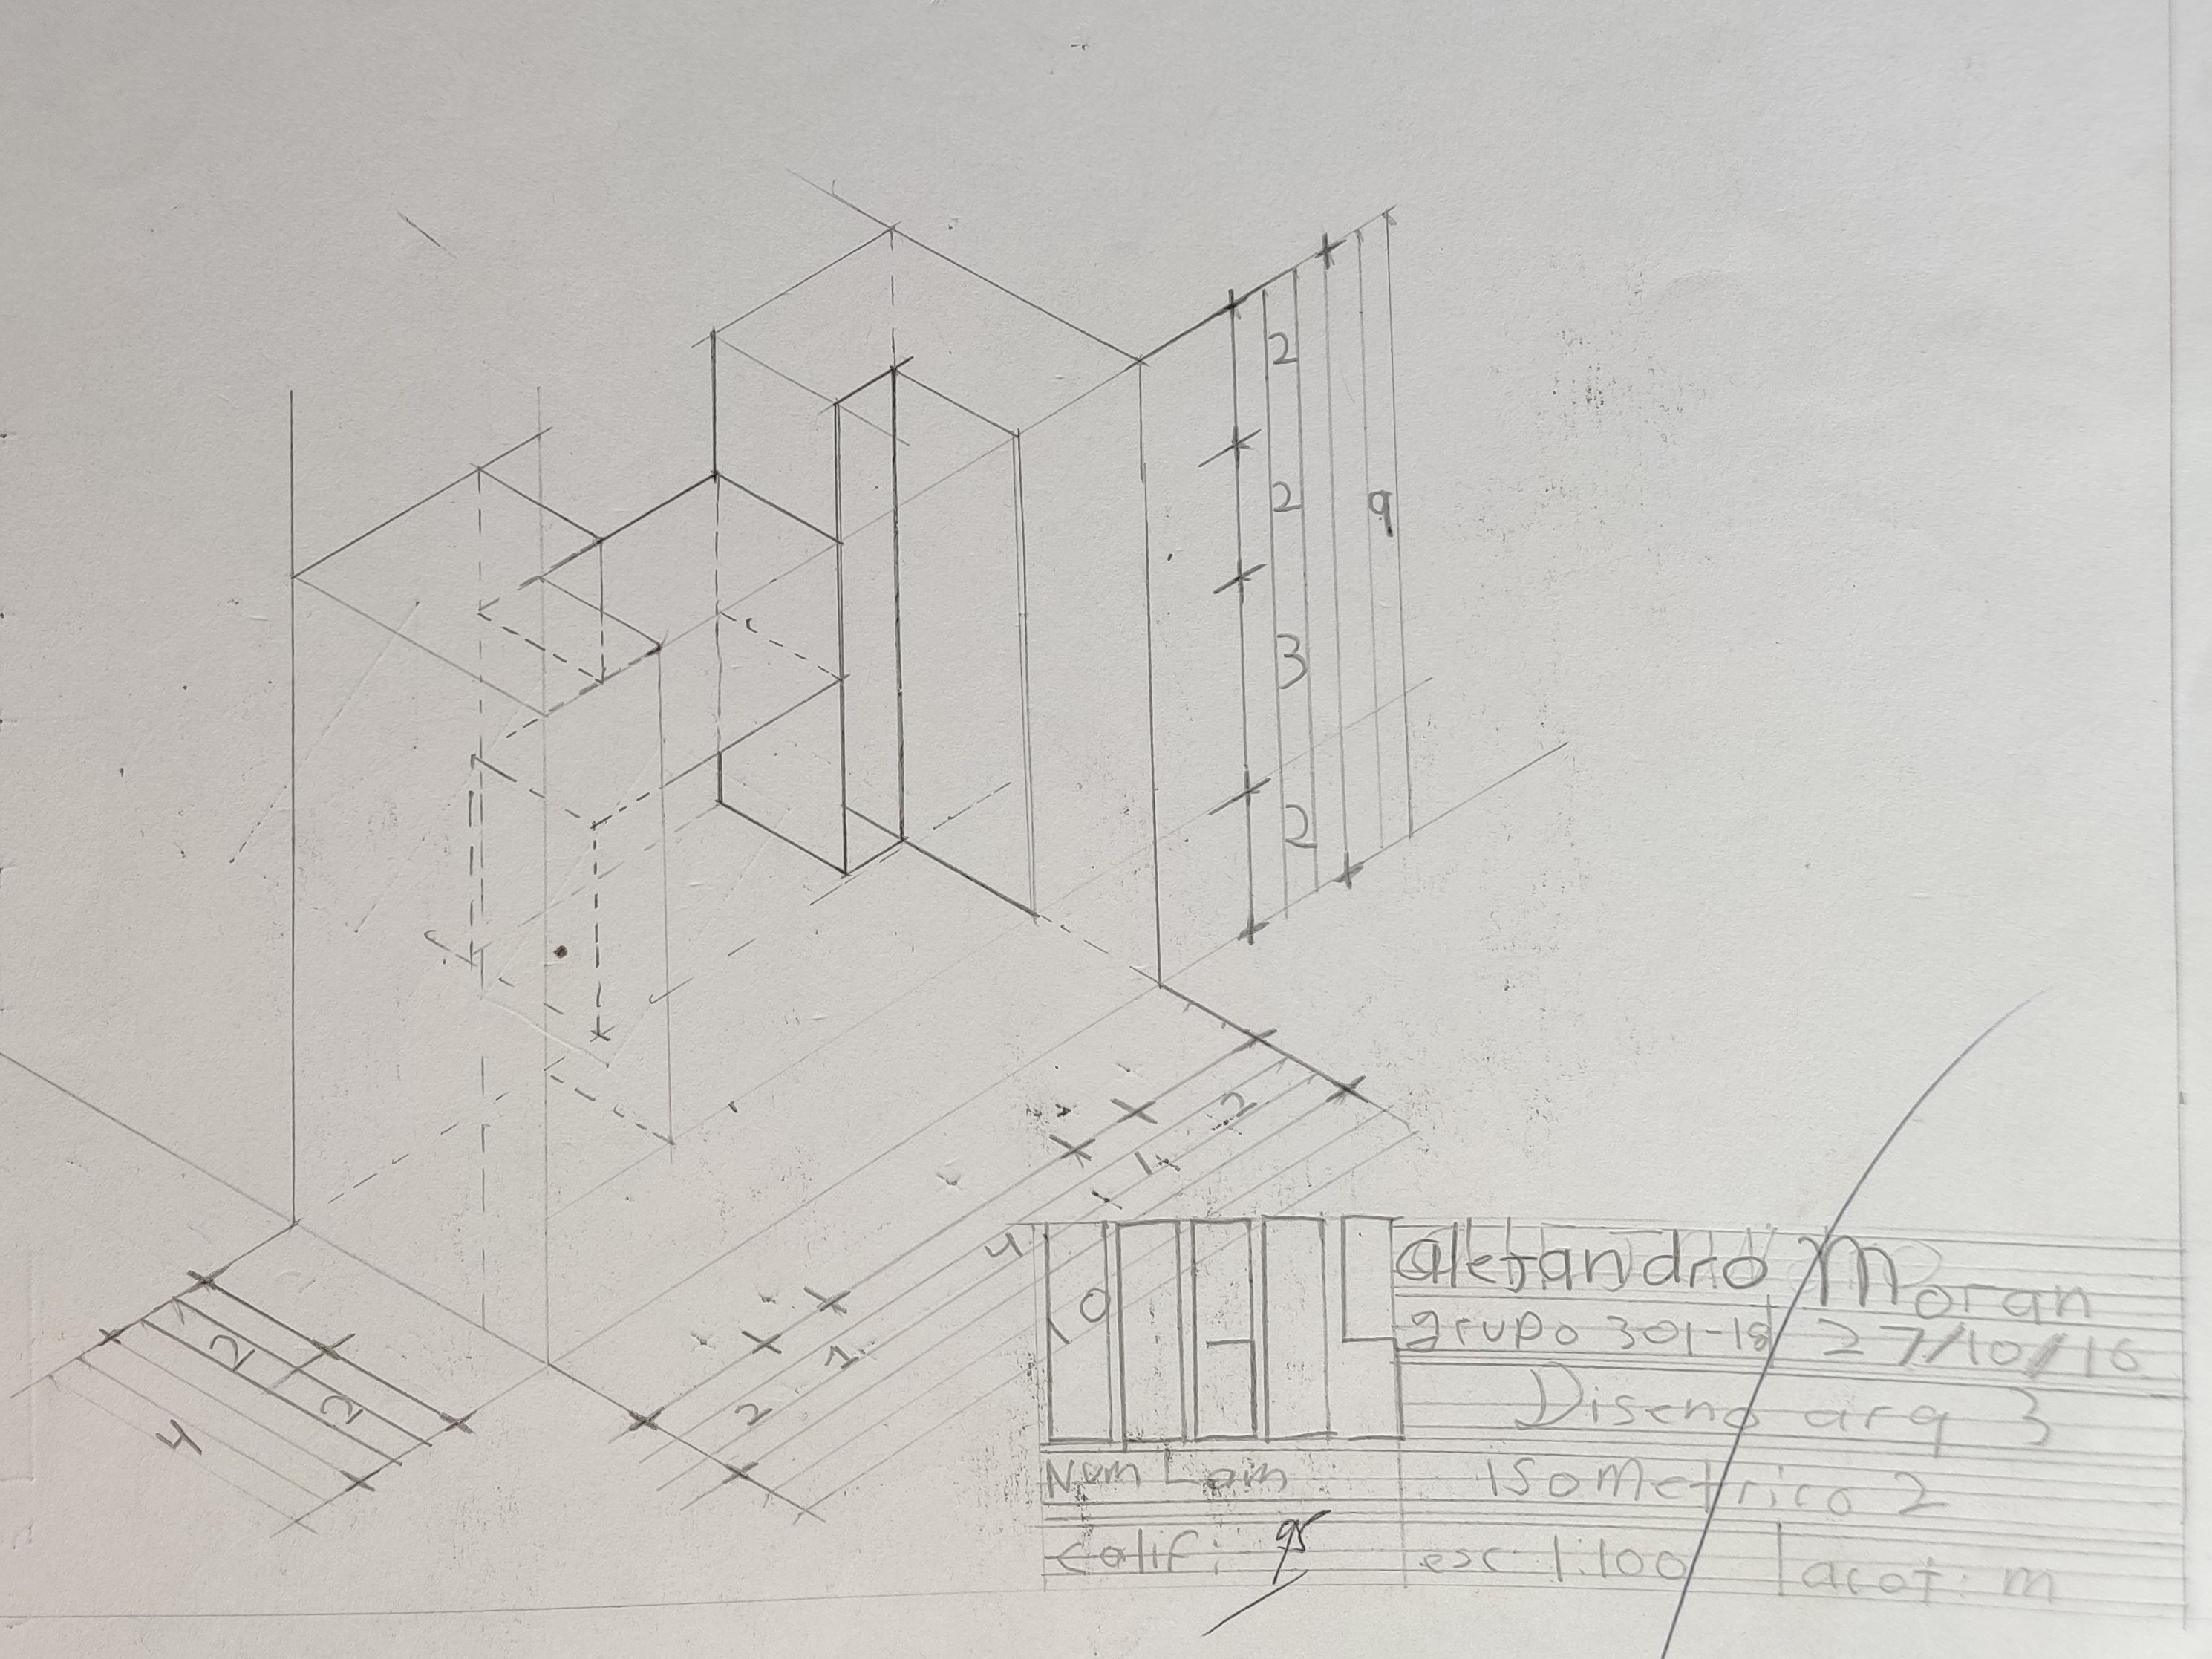 2
2
9
3
2
2
1
1
4
10
1
2
2
2
4
alejandro Moran
grupo 301-18 27/10/16
Diseno arq 3
Num Lam
isometrico 2
calif: 95
esc 1:100
acot: m